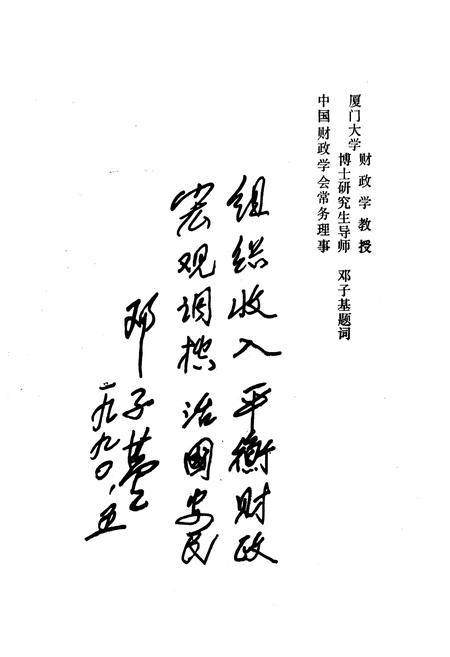 厦门大学 财政学教授
博士研究生导师 邓子基题词
中国财政学会常务理事
组织收入 平衡财政
宏观调控 治国安民
邓子基
一九九〇、五